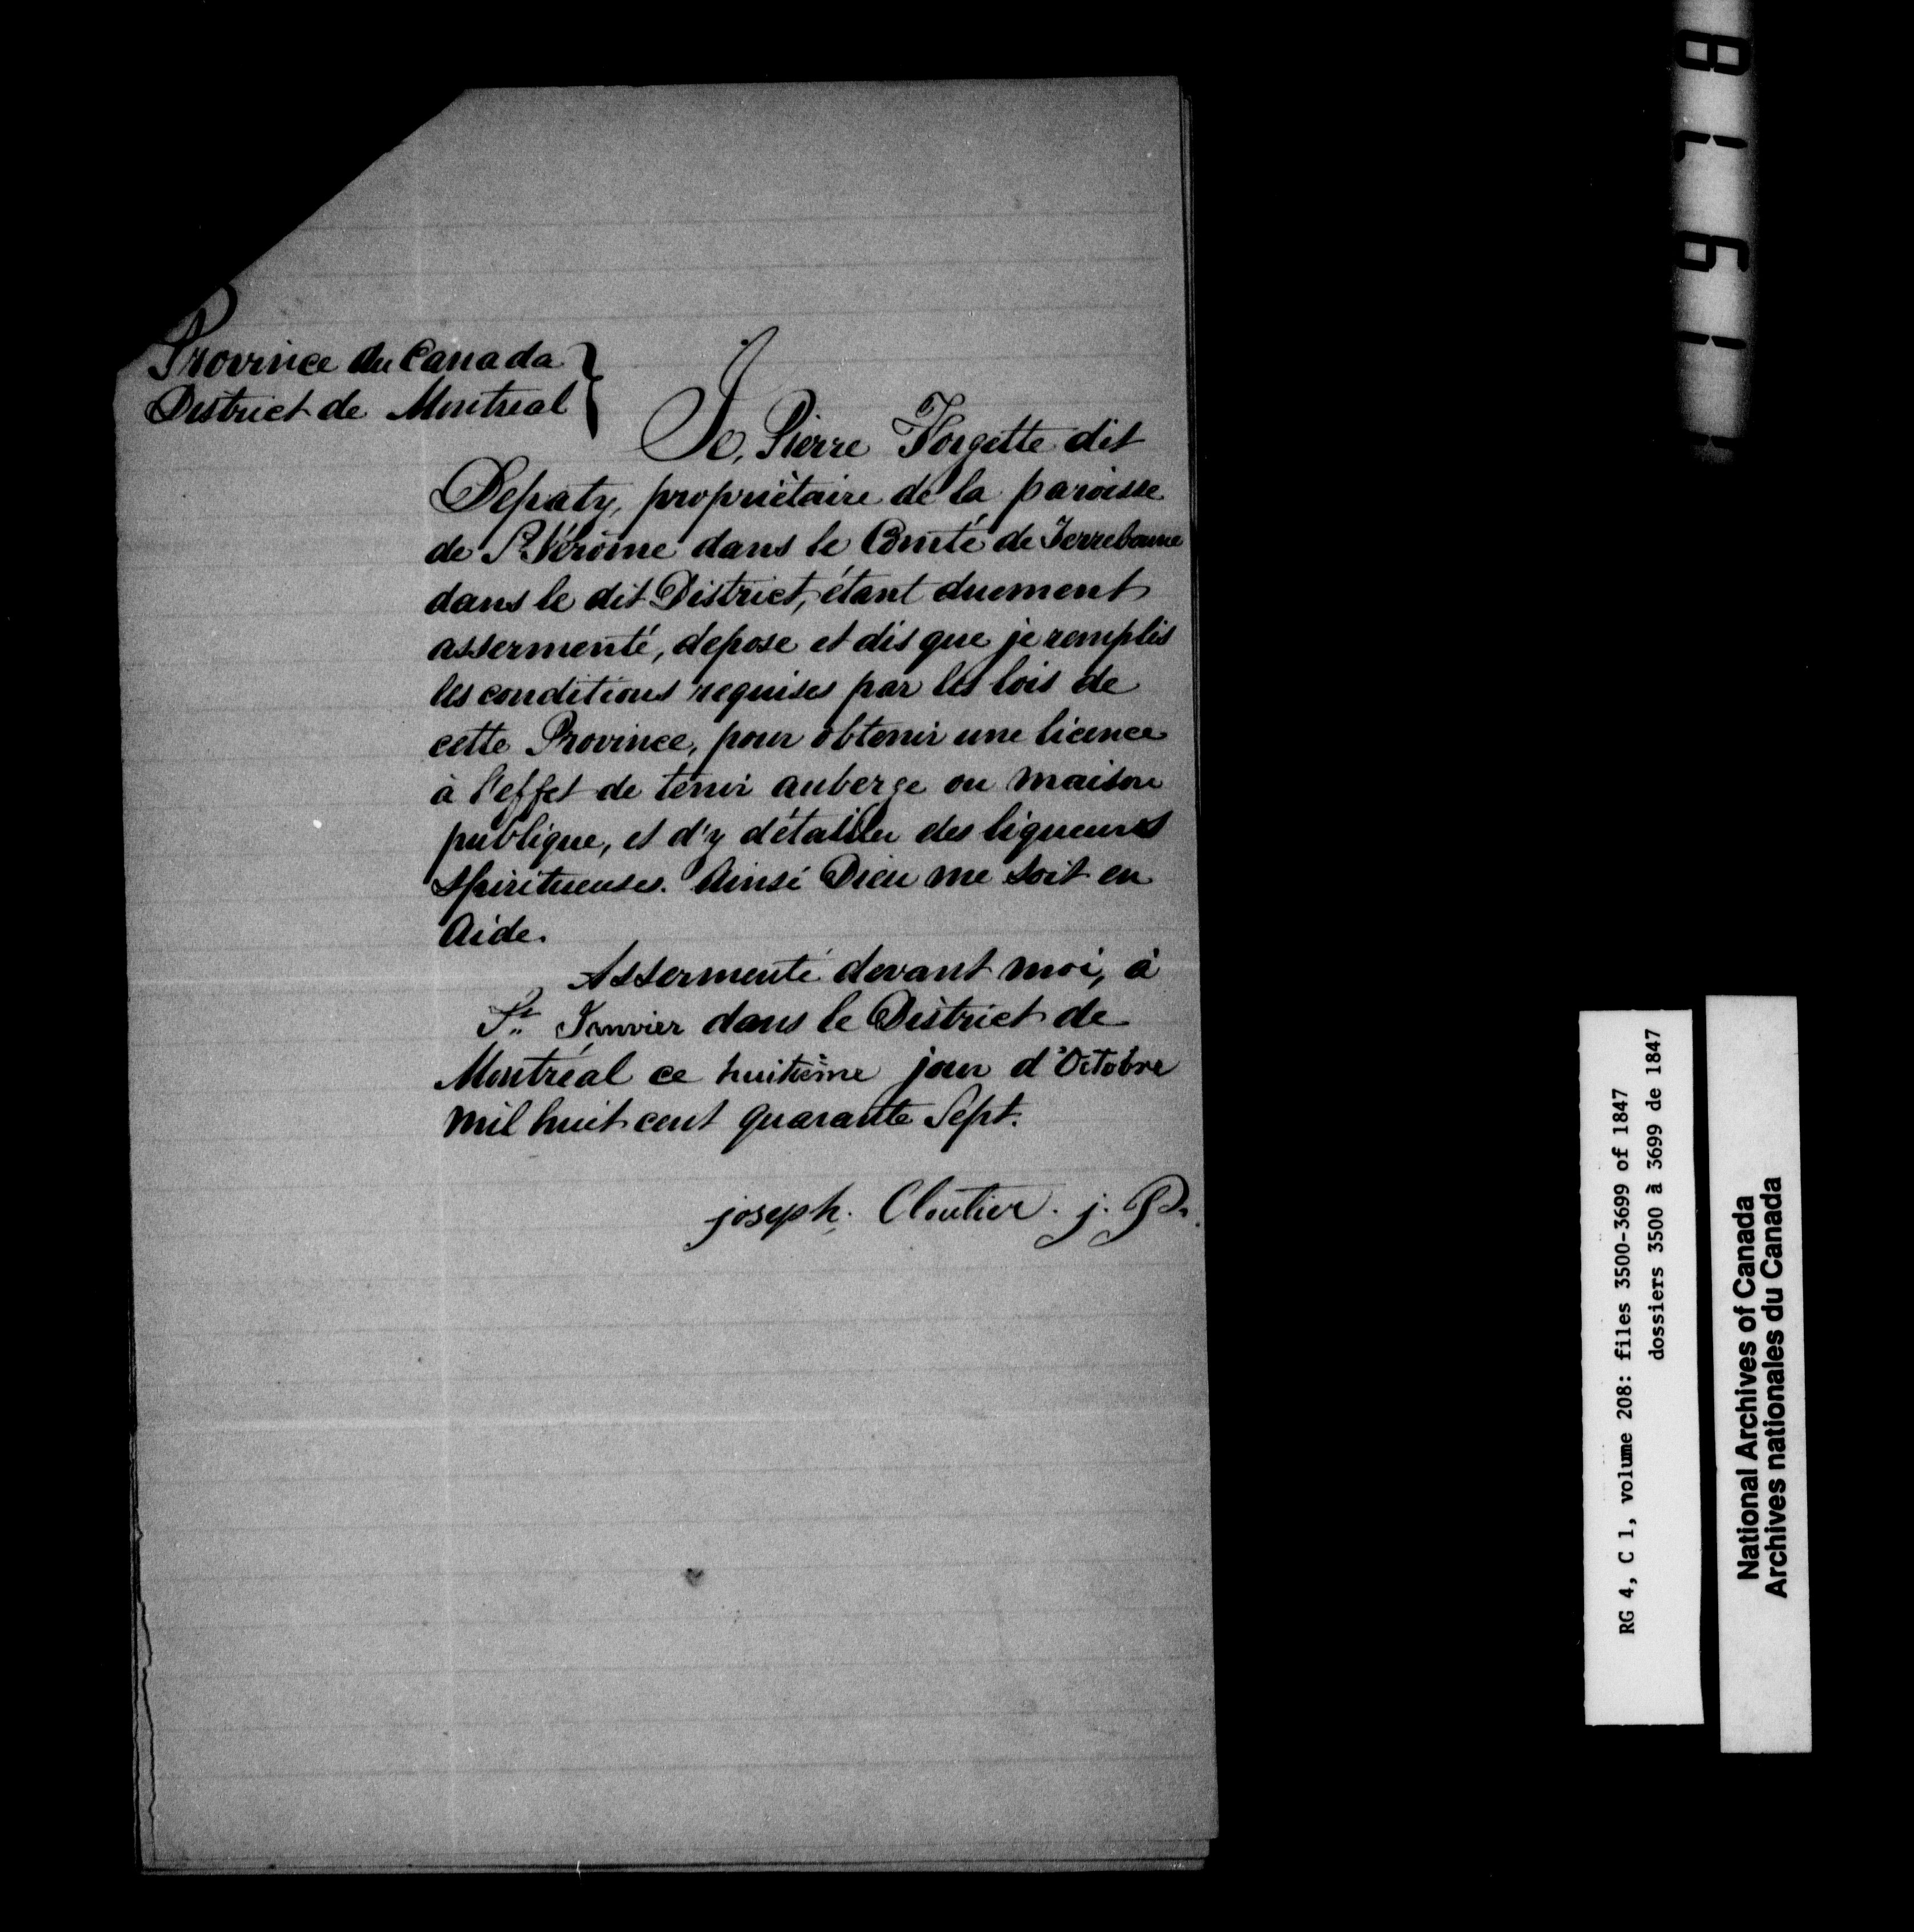 Province du Canada }
District de Montreal }
Je, Pierre Forgette dit
Depaty, propriètaire de la paroisse
de St. Jérôme dans le Comté de Terrebonne
dans le dit District, étant duement
assermenté, depose et dis que je remplis
les conditions requises par les lois de
cette Province, pour obtenir une licence
à l'effet de tenir auberge ou maison
publique, et d'y détailler des liqueurs
Spiritueuses. Ainsi Dieu me soit en
Aide.
Assermenté devant moi, à
St. Janvier dans le District de
Montréal ce huitième jour d'Octobre
mil huit cent quarante Sept.
joseph. Cloutier. j. P.
RG 4, C 1, volume 208: files 3500-3699 of 1847
dossiers 3500 à 3699 de 1847
National Archives of Canada
Archives nationales du Canada